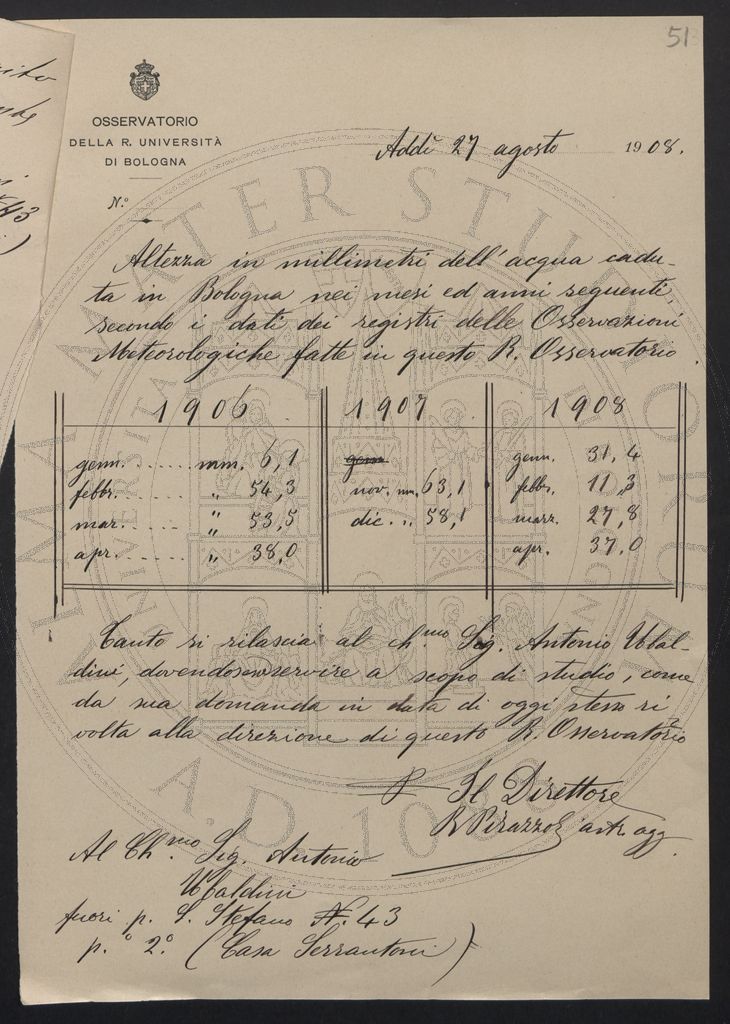 51
OSSERVATORIO
DELLA R. UNIVERSITÀ
DI BOLOGNA
Addì 27 agosto 1908.
N.º
Altezza in millimetri dell'acqua cadu-
ta in Bologna nei mesi ed anni seguenti,
secondo i dati dei registri delle Osservazioni
Meteorologiche fatte in questo R. Osservatorio.
1906 1907 1908
genn. ...... mm. 6,1 genn. 31,4
febbr. „ 54,3 nov. mm. 63,1 febbr. 11,3
mar. .... „ 53,5 dic. „ 58,1 marz. 27,8
apr. ..... „ 38,0 apr. 37,0
Tanto si rilascia al ch.mo Sig. Antonio Ubal-
dini, dovendosene servire a scopo di studio, come
da sua domanda in data di oggi stesso ri
volta alla direzione di questo R. Osservatorio
p Il Direttore
R Pirazzoli astr. agg.
Al Ch.mo Sig. Antonio
Ubaldini
fuori p. S. Stefano N. 43
p.º 2.º (Casa Serrantoni)
ALMA MATER STUDIORUM
A.D. 1088
43
)